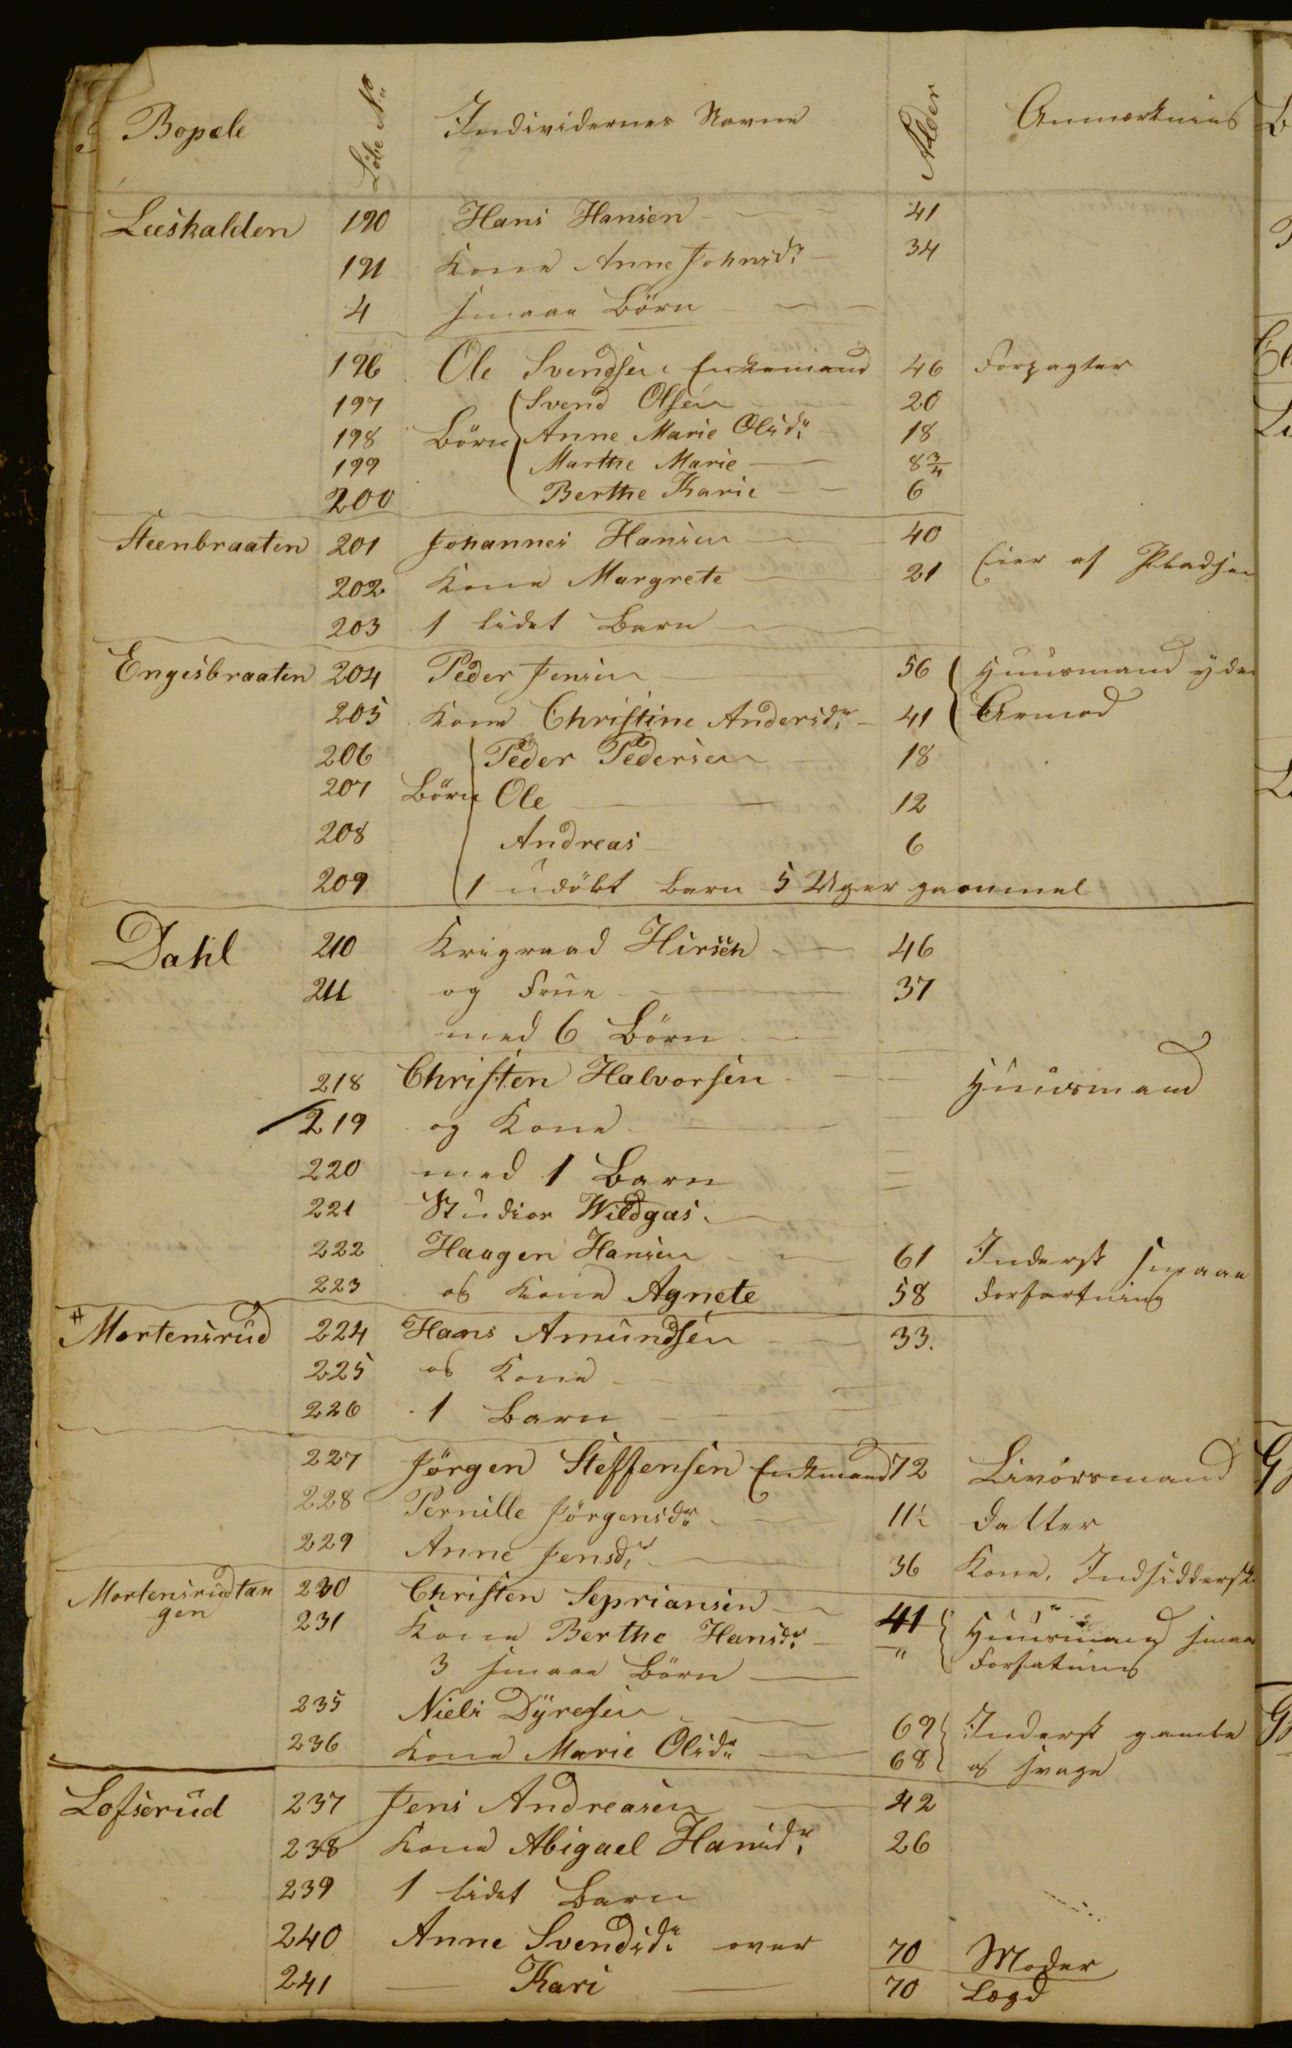 Bopæle Löbe No Individernes Navne Alder Anmærknins
Leeskalden 190 Hans Hansen 41
191 Kone Anne Johnsdr 34
4 smaae Börn
196 Ole Svendsen Enkemand 46 Forpagter
197 Svend Olsen 20
198 Börn Anne Marie Olsdr 18
199 Marthe Marie 8 3/4
200 Berthe Karie 6
Steenbraaten 201 Johannes Hansen 40
202 Kone Margrete 21 Eier af Pladsen
203 1 lidet Barn
Engesbraaten 204 Peder Jensen 56 Huusmand yder
205 Kone Christine Andersdr 41 Armod
206 Peder Pedersen 18
207 Börn Ole 12
208 Andreas 6
209 1 udöbt barn 5 Uger gammel
Dahl 210 Krigraad Hirsch 46
211 og Frue 37
med 6 Börn
218 Christen Halvorsen Huusmand
219 og Kone
220 med 1 Barn
221 Studior Wildgas
222 Haagen Hansen 61 Inderst smaae
223 og Kone Agnete 58 Forfartning
Mortensrud 224 Hans Amundsen 33.
225 og Kone
226 1 Barn
227 Jörgen Steffensen Enkmand 72 Livörsmand
228 Pernille Jörgensdr 11 1/2 Datter
229 Anne Jensdr 36 Kone, Indsidderske
Mortensrudtan
gen 230 Christen Sepriansen 41 Huusmand smaa
231 Kone Berthe Hansdr " Forfatning
3 smaae Börn
235 Niels Dyresen 69 Inderst gamle
236 Kone Marie Olsdr 68 og svage
Lofserud 237 Jens Andreasen 42
238 Kone Abigael Hansdr 26
239 1 lidet Barn
240 Anne Svendsdr over 70 Moder
241 — Kari — 70 Lægd